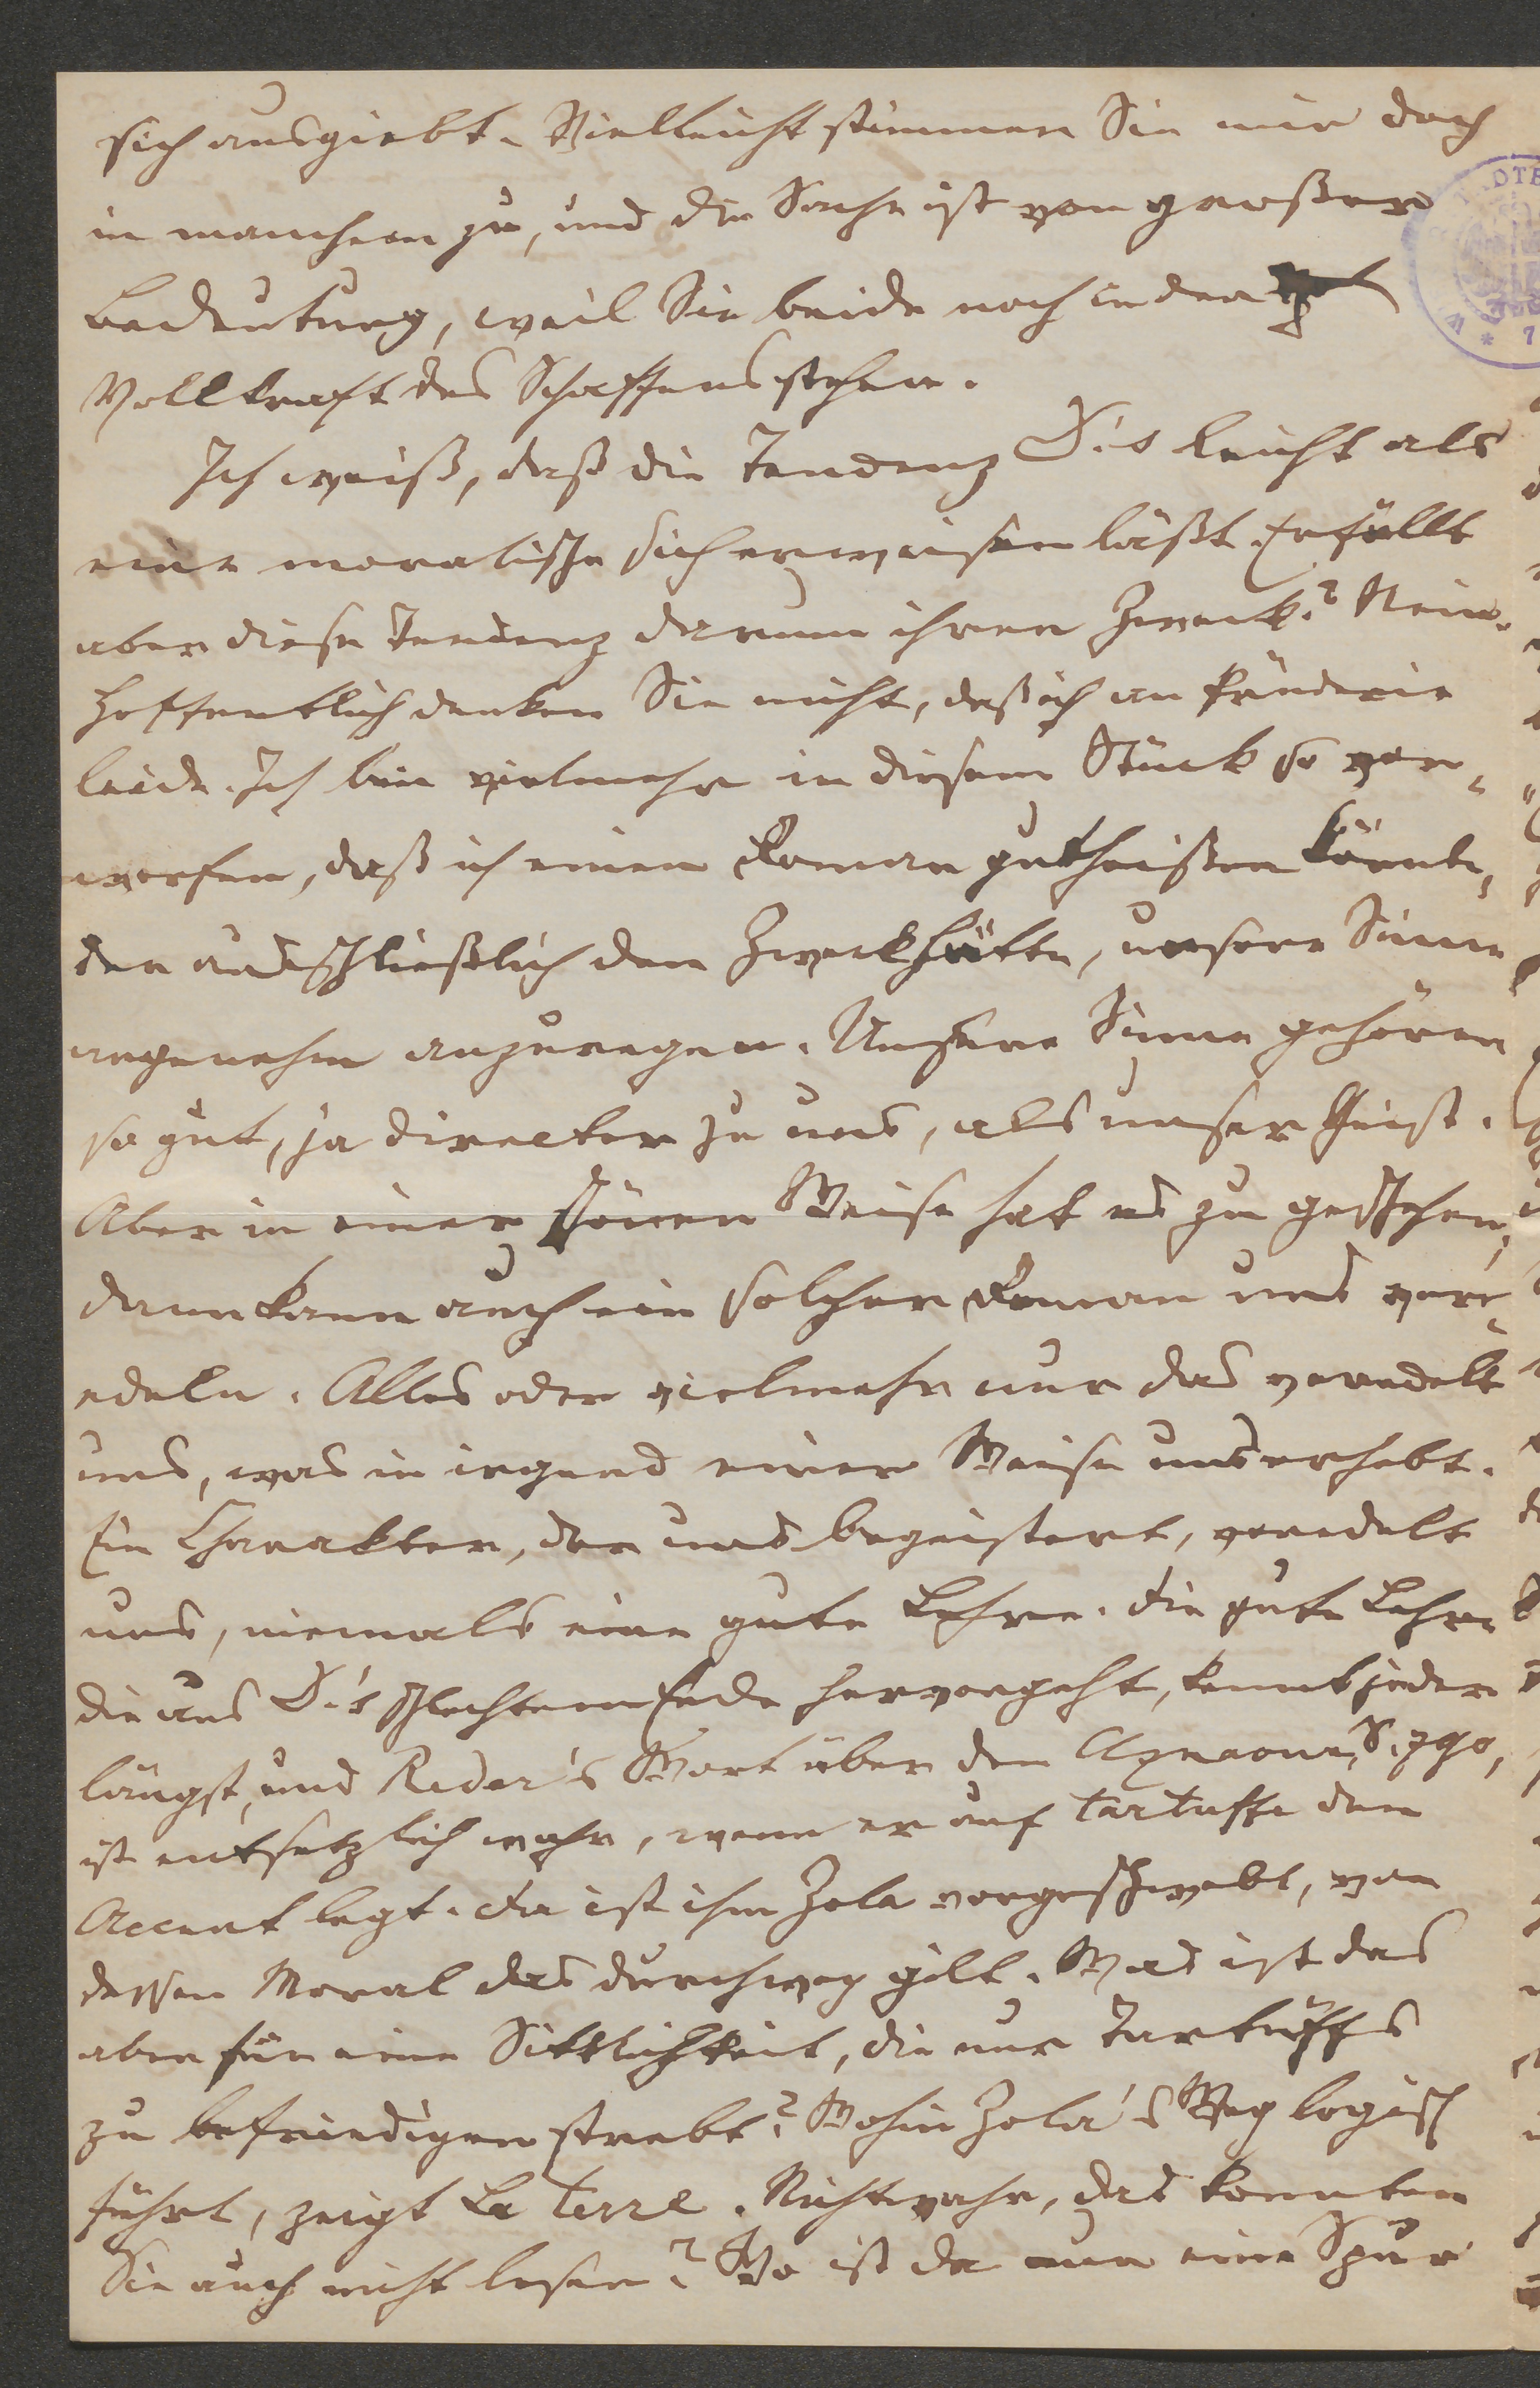 sich ausgiebt. Vielleicht stimmen Sie mir doch
in manchem zu, und die Sache ist von großer
Bedeutung, weil Sie beide noch in der
Vollkraft des Schaffens stehen.
Ich weiß, daß die Tendenz D.'s leicht als
eine moralische sich erweisen läßt. Erfüllt
aber diese Tendenz darum ihren Zweck? Nein.
Hoffentlich denken Sie nicht, daß ich an Prüderie
leide. Ich bin vielmehr in diesem Stück so ver-
worfen, daß ich einen Roman gutheißen könnte,
der ausschließlich den Zweck hätte, unsere Sinne
angenehm anzuregen. Unsere Sinne gehören
so gut, ja directer zu uns, als unser Geist.
Aber in einer schönen Weise hat es zu geschehen,
dann kann auch ein solcher Roman uns ver-
edeln. Alles oder vielmehr nur das veredelt
uns, was in irgend einer Weise uns erhebt.
Ein Charakter, der uns begeistert, veredelt
uns, niemals eine gute Lehre. Die gute Lehre
die aus D.'s schlechtem Ende hervorgeht, kennt jeder
längst, und Reder's Wort über den S. 790,
ist entsetzlich wahr, wenn er auf Tartuffe den
Accent legt. Da ist ihm Zola vorgeschwebt, von
dessen Moral das durchweg gilt. Was ist das
aber für eine Sittlichkeit, die nur Tartuffs
zu befriedigen strebt? Wohin Zola's Weg logisch
führt, zeigt La Terre. Nichtwahr, das konnten
Sie auch nicht lesen? Wo ist da nun eine Spur